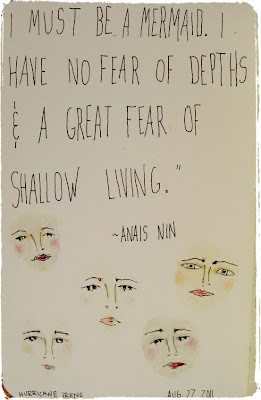 I MUST BE A MERMAID. I
HAVE NO FEAR OF DEPTHS
& A GREAT FEAR OF
SHALLOW LIVING."
~ANAIS NIN
HURRICANE IRENE
AUG 27 2011